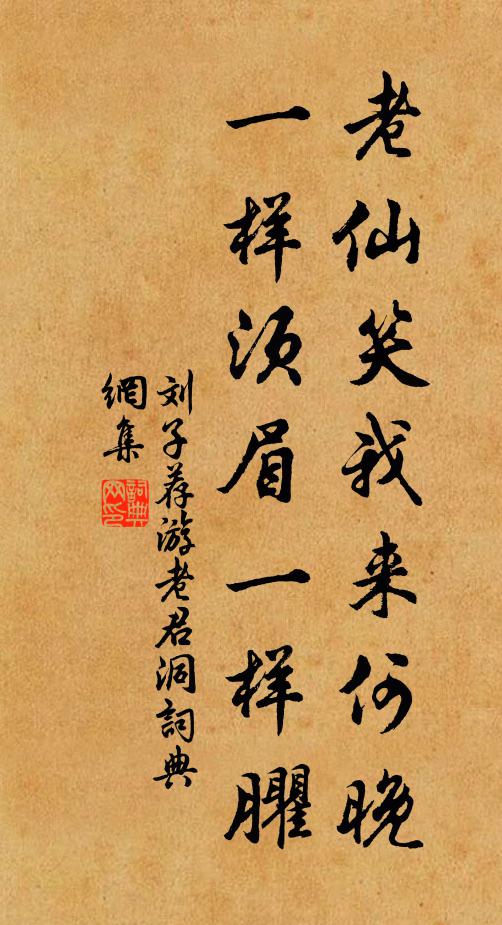 老仙笑我来何晚
一样须眉一样臞
刘子荐游老君洞詞典
網集
詞典
网印